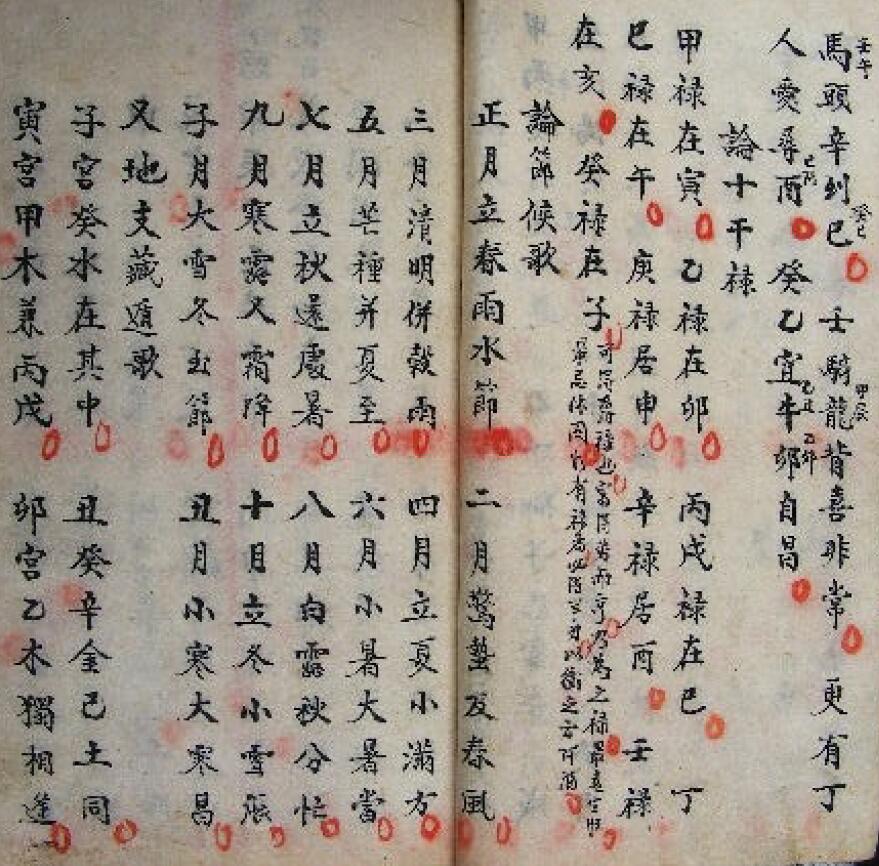 馬頭辛到巳 壬騎龍背喜非常 更有丁
壬午 癸巳 甲辰
人愛尋酉 癸乙宜牛卯自昌
乙丑 乙卯
論十干禄
甲禄在寅 乙禄在卯 丙戌禄在巳 丁
巳禄在午 庚禄居申 辛禄居酉 壬禄
在亥 癸禄在子
論節候歌
正月立春雨水節 二月驚蟄及春風
三月清明併穀雨 四月立夏小滿方
五月芒種并夏至 六月小暑大暑當
七月立秋還處暑 八月白露秋分忙
九月寒露又霜降 十月立冬小雪張
子月大雪冬至節 丑月小寒大寒昌
又地支藏遁歌
子宮癸水在其中 丑癸辛金己土同
寅宮甲木兼丙戌 卯宮乙木獨相逢